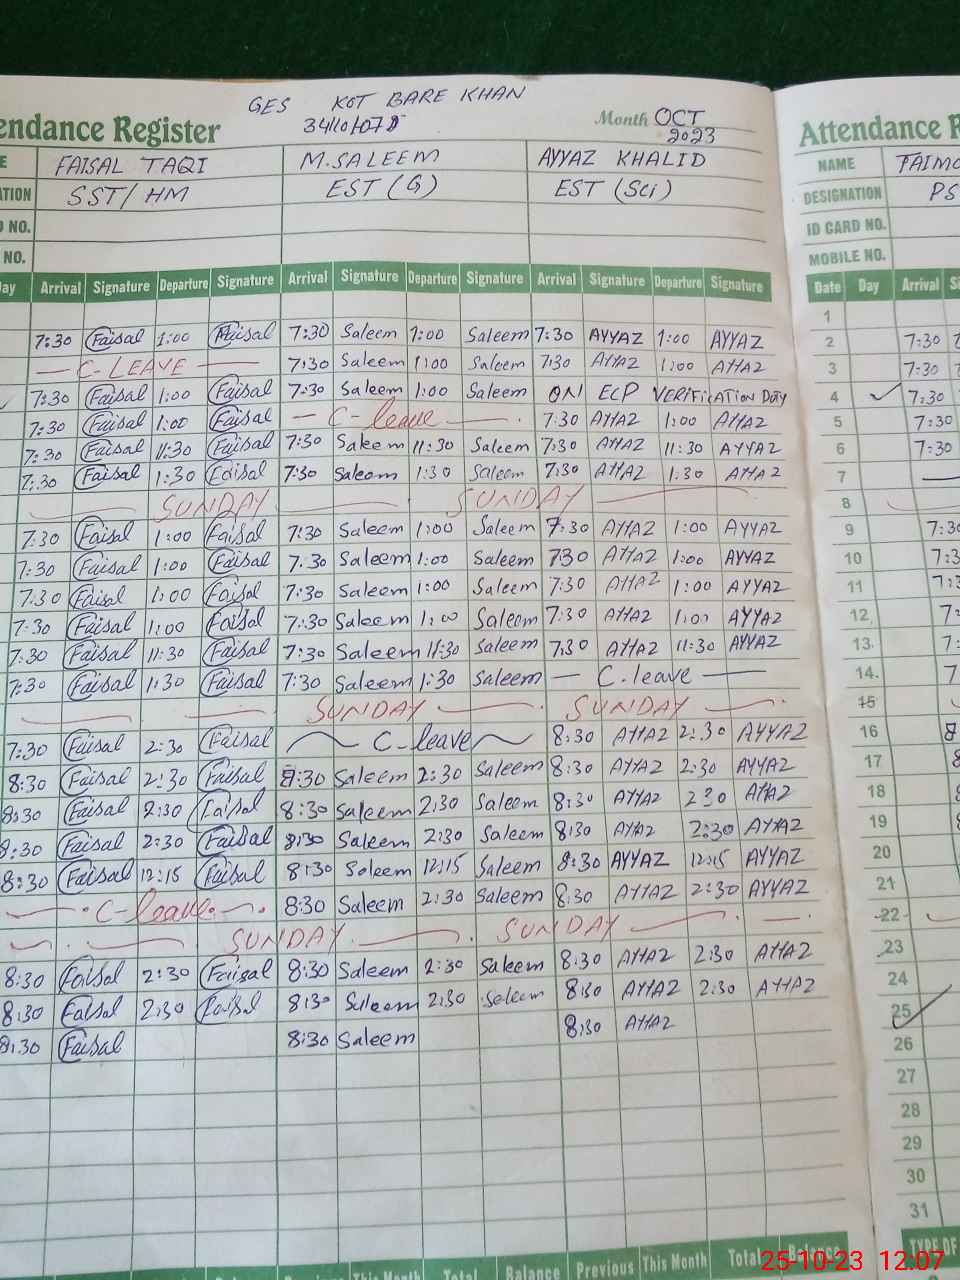 GES KOT BARE KHAN
34101078
endance Register Month OCT 2023 Attendance R
E FAISAL TAQI M.SALEEM AYYAZ KHALID NAME
ATION SST/HM EST (G) EST (Sci) DESIGNATION PS
D NO. ID CARD NO.
NO. MOBILE NO.
Day Arrival Signature Departure Signature Arrival Signature Departure Signature Arrival Signature Departure Signature Date Day Arrival
1
7:30 Faisal 1:00 Faisal 7:30 Saleem 1:00 Saleem 7:30 AYYAZ 1:00 AYYAZ 2 7:30
C-LEAVE 7:30 Saleem 1:00 Saleem 7:30 AYYAZ 1:00 AYYAZ 3 7:30
7:30 Faisal 1:00 Faisal 7:30 Saleem 1:00 Saleem ON ECP VERIFICATION DAY 4 7:30
7:30 Faisal 1:00 Faisal C-leave 7:30 AYYAZ 1:00 AYYAZ 5 7:30
7:30 Faisal 11:30 Faisal 7:30 Saleem 11:30 Saleem 7:30 AYYAZ 11:30 AYYAZ 6 7:30
7:30 Faisal 1:30 Faisal 7:30 Saleem 1:30 Saleem 7:30 AYYAZ 1:30 AYYAZ 7
SUNDAY SUNDAY 8
7:30 Faisal 1:00 Faisal 7:30 Saleem 1:00 Saleem 7:30 AYYAZ 1:00 AYYAZ 9
7:30 Faisal 1:00 Faisal 7:30 Saleem 1:00 Saleem 730 AYYAZ 1:00 AYYAZ 10
7:30 Faisal 1:00 Faisal 7:30 Saleem 1:00 Saleem 7:30 AYYAZ 1:00 AYYAZ 11
7:30 Faisal 1:00 Faisal 7:30 Saleem 1:00 Saleem 7:30 AYYAZ 1:00 AYYAZ 12
7:30 Faisal 11:30 Faisal 7:30 Saleem 11:30 Saleem 7:30 AYYAZ 11:30 AYYAZ 13
7:30 Faisal 1:30 Faisal 7:30 Saleem 1:30 Saleem C.leave 14
SUNDAY SUNDAY 15
7:30 Faisal 2:30 Faisal C-leave 8:30 AYYAZ 2:30 AYYAZ 16
8:30 Faisal 2:30 Faisal 8:30 Saleem 2:30 Saleem 8:30 AYYAZ 2:30 AYYAZ 17
8:30 Faisal 2:30 Faisal 8:30 Saleem 2:30 Saleem 8:30 AYYAZ 230 AYYAZ 18
8:30 Faisal 2:30 Faisal 8:30 Saleem 2:30 Saleem 8:30 AYYAZ 2:30 AYYAZ 19
8:30 Faisal 12:15 Faisal 8:30 Saleem 12:15 Saleem 8:30 AYYAZ 12:15 AYYAZ 20
C-leave 8:30 Saleem 2:30 Saleem 8:30 AYYAZ 2:30 AYYAZ 21
SUNDAY SUNDAY 22
8:30 Faisal 2:30 Faisal 8:30 Saleem 2:30 Saleem 8:30 AYYAZ 2:30 AYYAZ 23
8:30 Faisal 2:30 Faisal 8:30 Saleem 2:30 Saleem 8:30 AYYAZ 2:30 AYYAZ 24
8:30 Faisal 8:30 Saleem 8:30 AYYAZ 25
26
27
28
29
30
31
Total Balance Previous This Month Total Balance TYPE OF
25-10-23 12:07